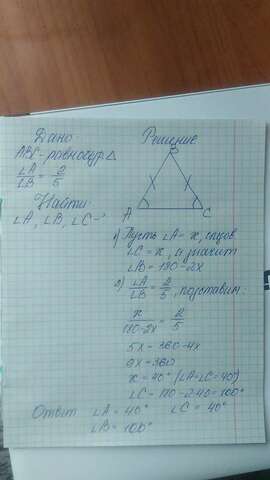 Дано
Решение
ABC - равнобедр Δ
∠A/∠B = 2/5
Найти
∠A, ∠B, ∠C - ?
B
A C
1) Пусть ∠A = x, тогда
∠C = x, а значит
∠B = 180 - 2x
2) ∠A/∠B = 2/5, подставим:
x/180-2x = 2/5
5x = 360 - 4x
9x = 360
x = 40° (∠A=∠C=40°)
∠C = 180 - 2·40 = 100°
Ответ ∠A = 40° ∠C = 40°
∠B = 100°